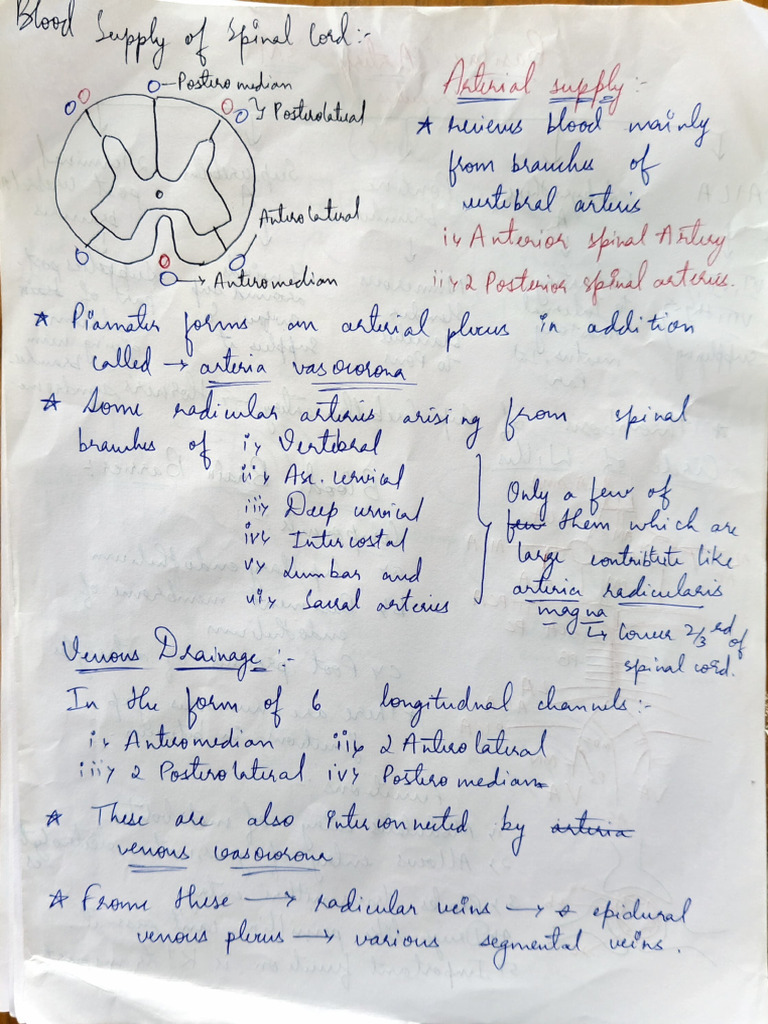 Blood Supply of Spinal Cord:-
Posteromedian
Posterolateral
Anterolateral
Anteromedian
Arterial supply:-
* recieves blood mainly
from branches of
vertebral arteris
i> Anterior spinal Artery
ii> 2 Posterior spinal arteries.
* Piamater forms an arterial plexus in addition
called → arteria vasocorona
* Some radicular arteris arising from spinal
branches of i> Vertebral
ii> Asc. cervical
iii> Deep cervical
iv> Intercostal
v> Lumbar and
vi> Sacral arteries
Only a few of
few them which are
large contribute like
arteria radicularis
magna
↳ Lower 2/3rd of
spinal cord.
Venous Drainage:-
In the form of 6 longitudnal channels:-
i> Anteromedian ii> 2 Anterolateral
iii> 2 Posterolateral iv> Posteromedian
* These are also interconnected by arteria
venous vasocorona
* Frome these → radicular veins → epidural
venous plexus → various segmental veins.